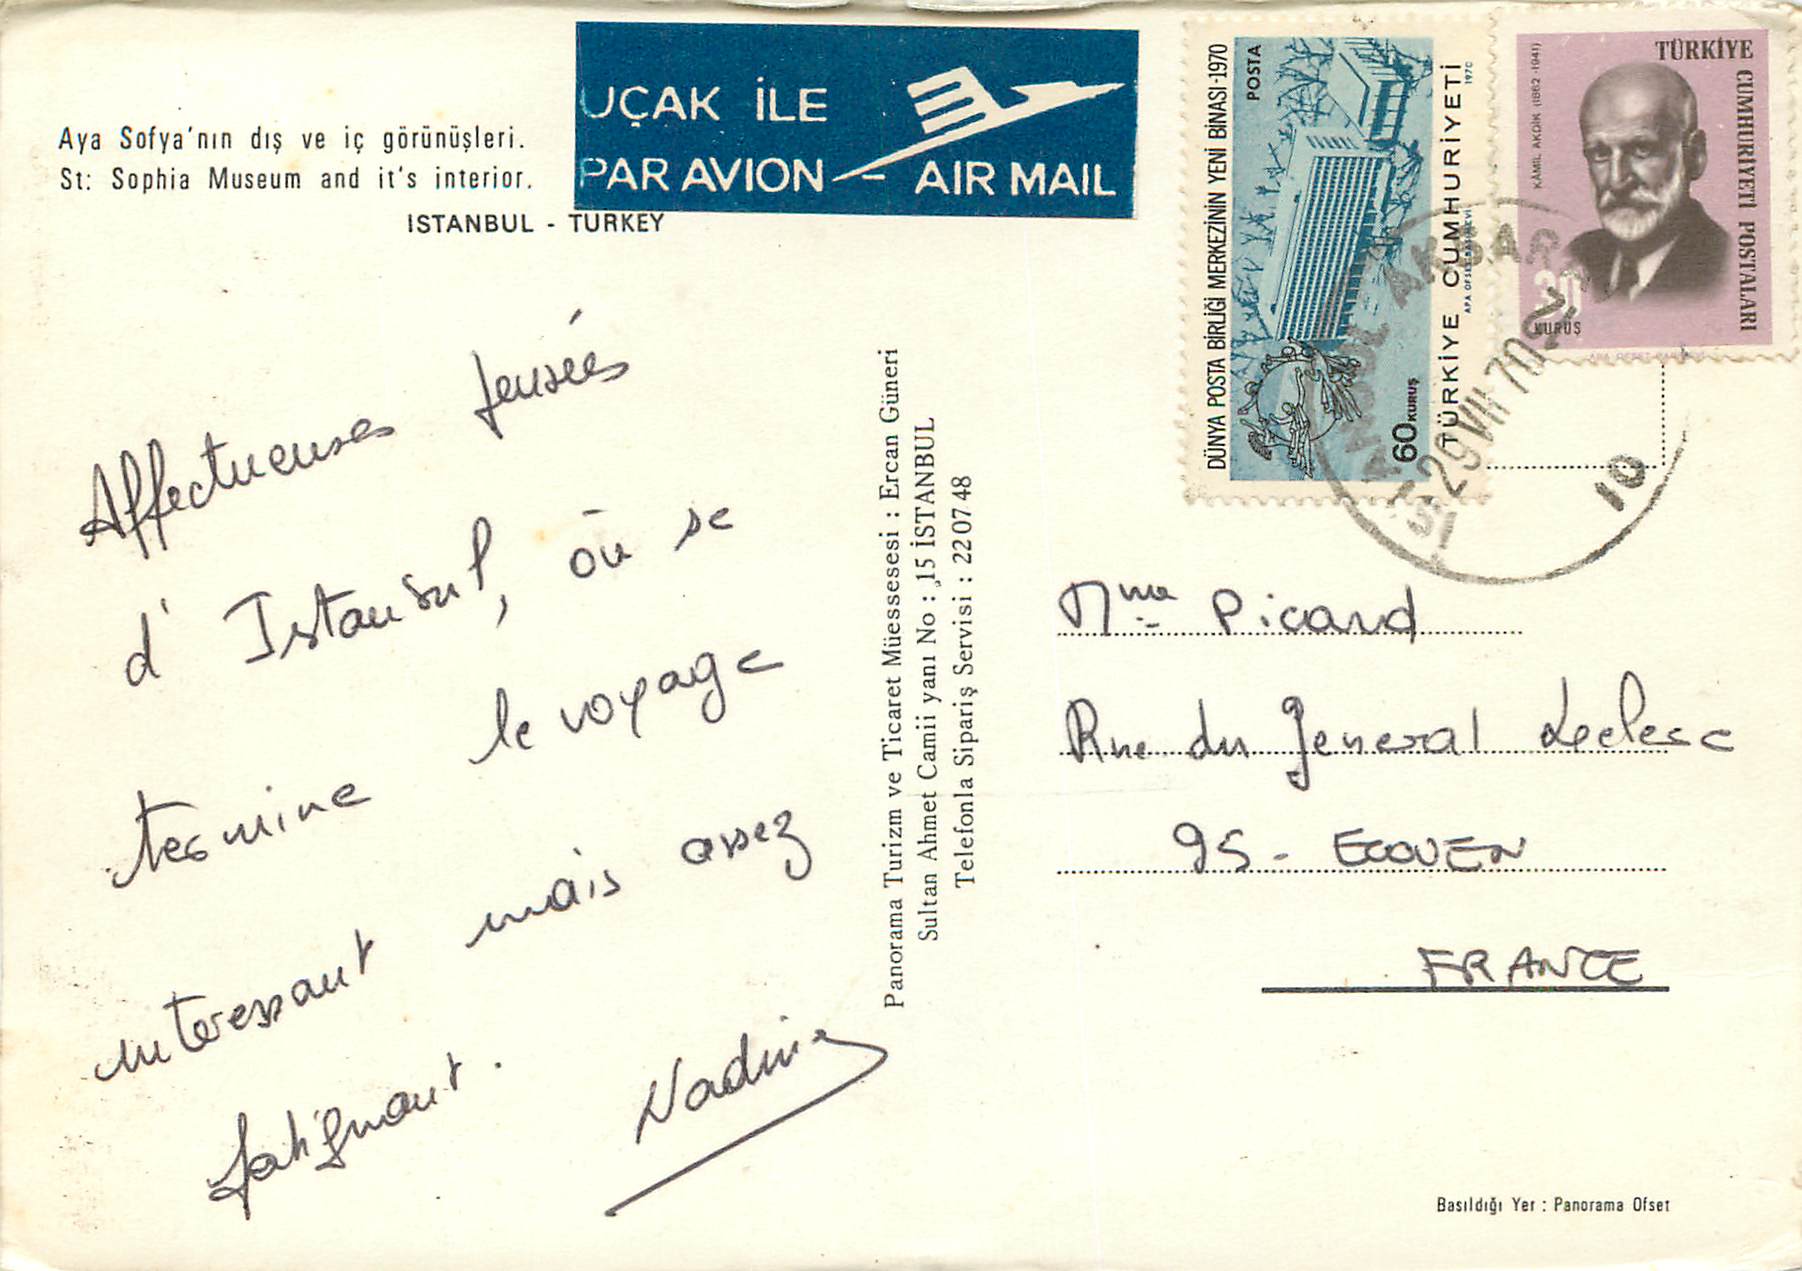 Aya Sofya'nın dış ve iç görünüşleri.
St: Sophia Museum and it's interior.
ISTANBUL - TURKEY
UÇAK İLE
PAR AVION - AIR MAIL
Affectueuses pensées
d'Istanbul, où se
termine le voyage
interessant mais assez
fatiguant.
Nadine
Panorama Turizm ve Ticaret Müessesesi : Ercan Güneri
Sultan Ahmet Camii yanı No : 15 İSTANBUL
Telefonla Sipariş Servisi : 22 07 48
DÜNYA POSTA BİRLİĞİ MERKEZİNİN YENİ BİNASI-1970
POSTA
60 KURUŞ
TÜRKİYE CUMHURİYETİ
1970
KÂMİL AKDİK (1862-1941)
TÜRKİYE
CUMHURİYETİ POSTALARI
30
KURUŞ
29 VII 70
10
Mme Picard
Rue du General Leclerc
95 - ECOUEN
FRANCE
Basıldığı Yer : Panorama Ofset